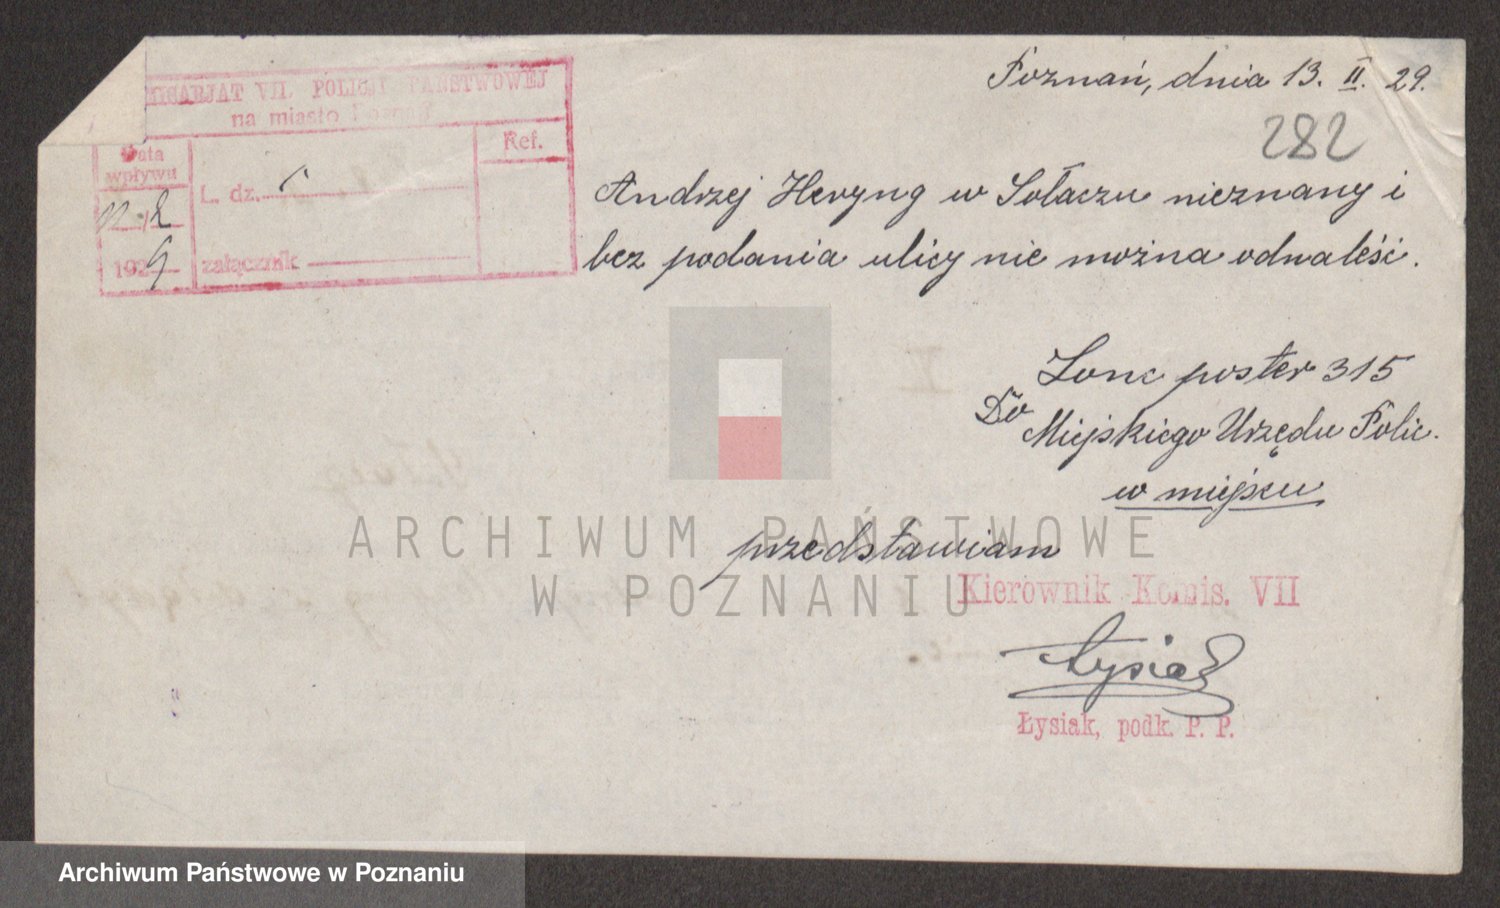 MISARJAT VII. POLICJI PAŃSTWOWEJ
na miasto Poznań
Data
wpływu
12.2
1929
L. dz.
załącznik
Ref.
Poznań, dnia 13. II. 29.
282
Andrzej Heryng w Sołaczu nieznany i
bez podania ulicy nie można odnaleść.
Lonc poster 315
Do
Miejskiego Urzędu Polic.
w miejscu
przedstawiam
Kierownik Komis. VII
Łysiak
Łysiak, podk. P. P.
ARCHIWUM PAŃSTWOWE
W POZNANIU
Archiwum Państwowe w Poznaniu